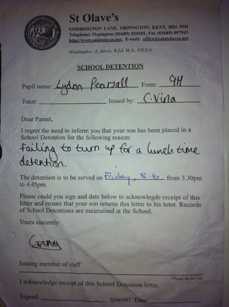 St Olave's
GODDINGTON LANE, ORPINGTON, KENT, BR6 9SH
Telephone: Orpington (01689) 820101, Fax (01689) 897943
Headmaster: A. Jarvis,
SCHOOL DETENTION
Pupil name: Lydon Pearsall Form: 9H
Tutor: Issued by: C. Vista
Dear Parent,
I regret the need to inform you that your son has been placed in a
School Detention for the following reason:
Failing to turn up for a lunch time
detention.
The detention is to be served on Friday, from 3.30pm
to 4.45pm.
Please could you sign and date below to acknowledge receipt of this
letter and ensure that your son returns this letter to his tutor. Records
of School Detentions are maintained at the School.
Yours sincerely
Issuing member of staff
I acknowledge receipt of this School Detention letter
Signed (parent) Date